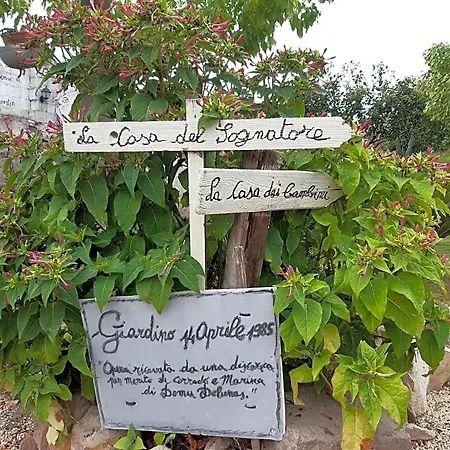 La Casa del Sognatore
La Casa dei Camborini
Giardino 14 Aprile 1985
"Opera ricavata da una discarica
per merito di Corrado e Marina
di Domu Delunas,"